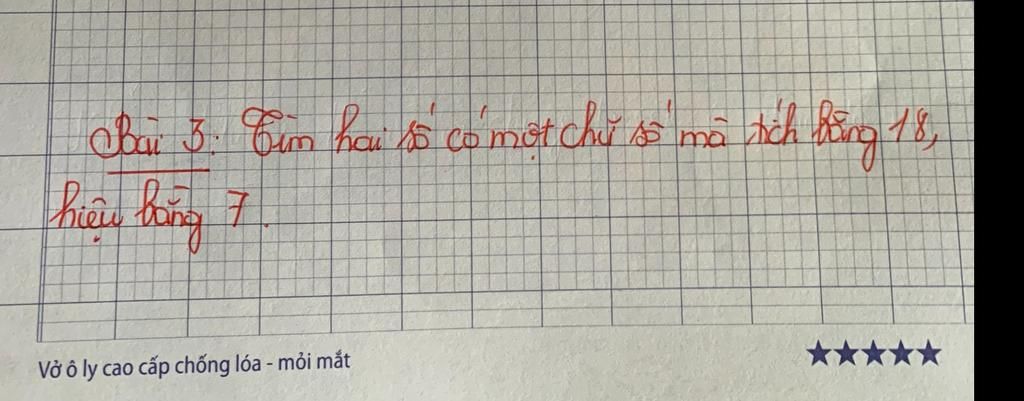 Bài 3: Tìm hai số có một chữ số mà tích bằng 18,
hiệu bằng 7.
Vở ô ly cao cấp chống lóa - mỏi mắt